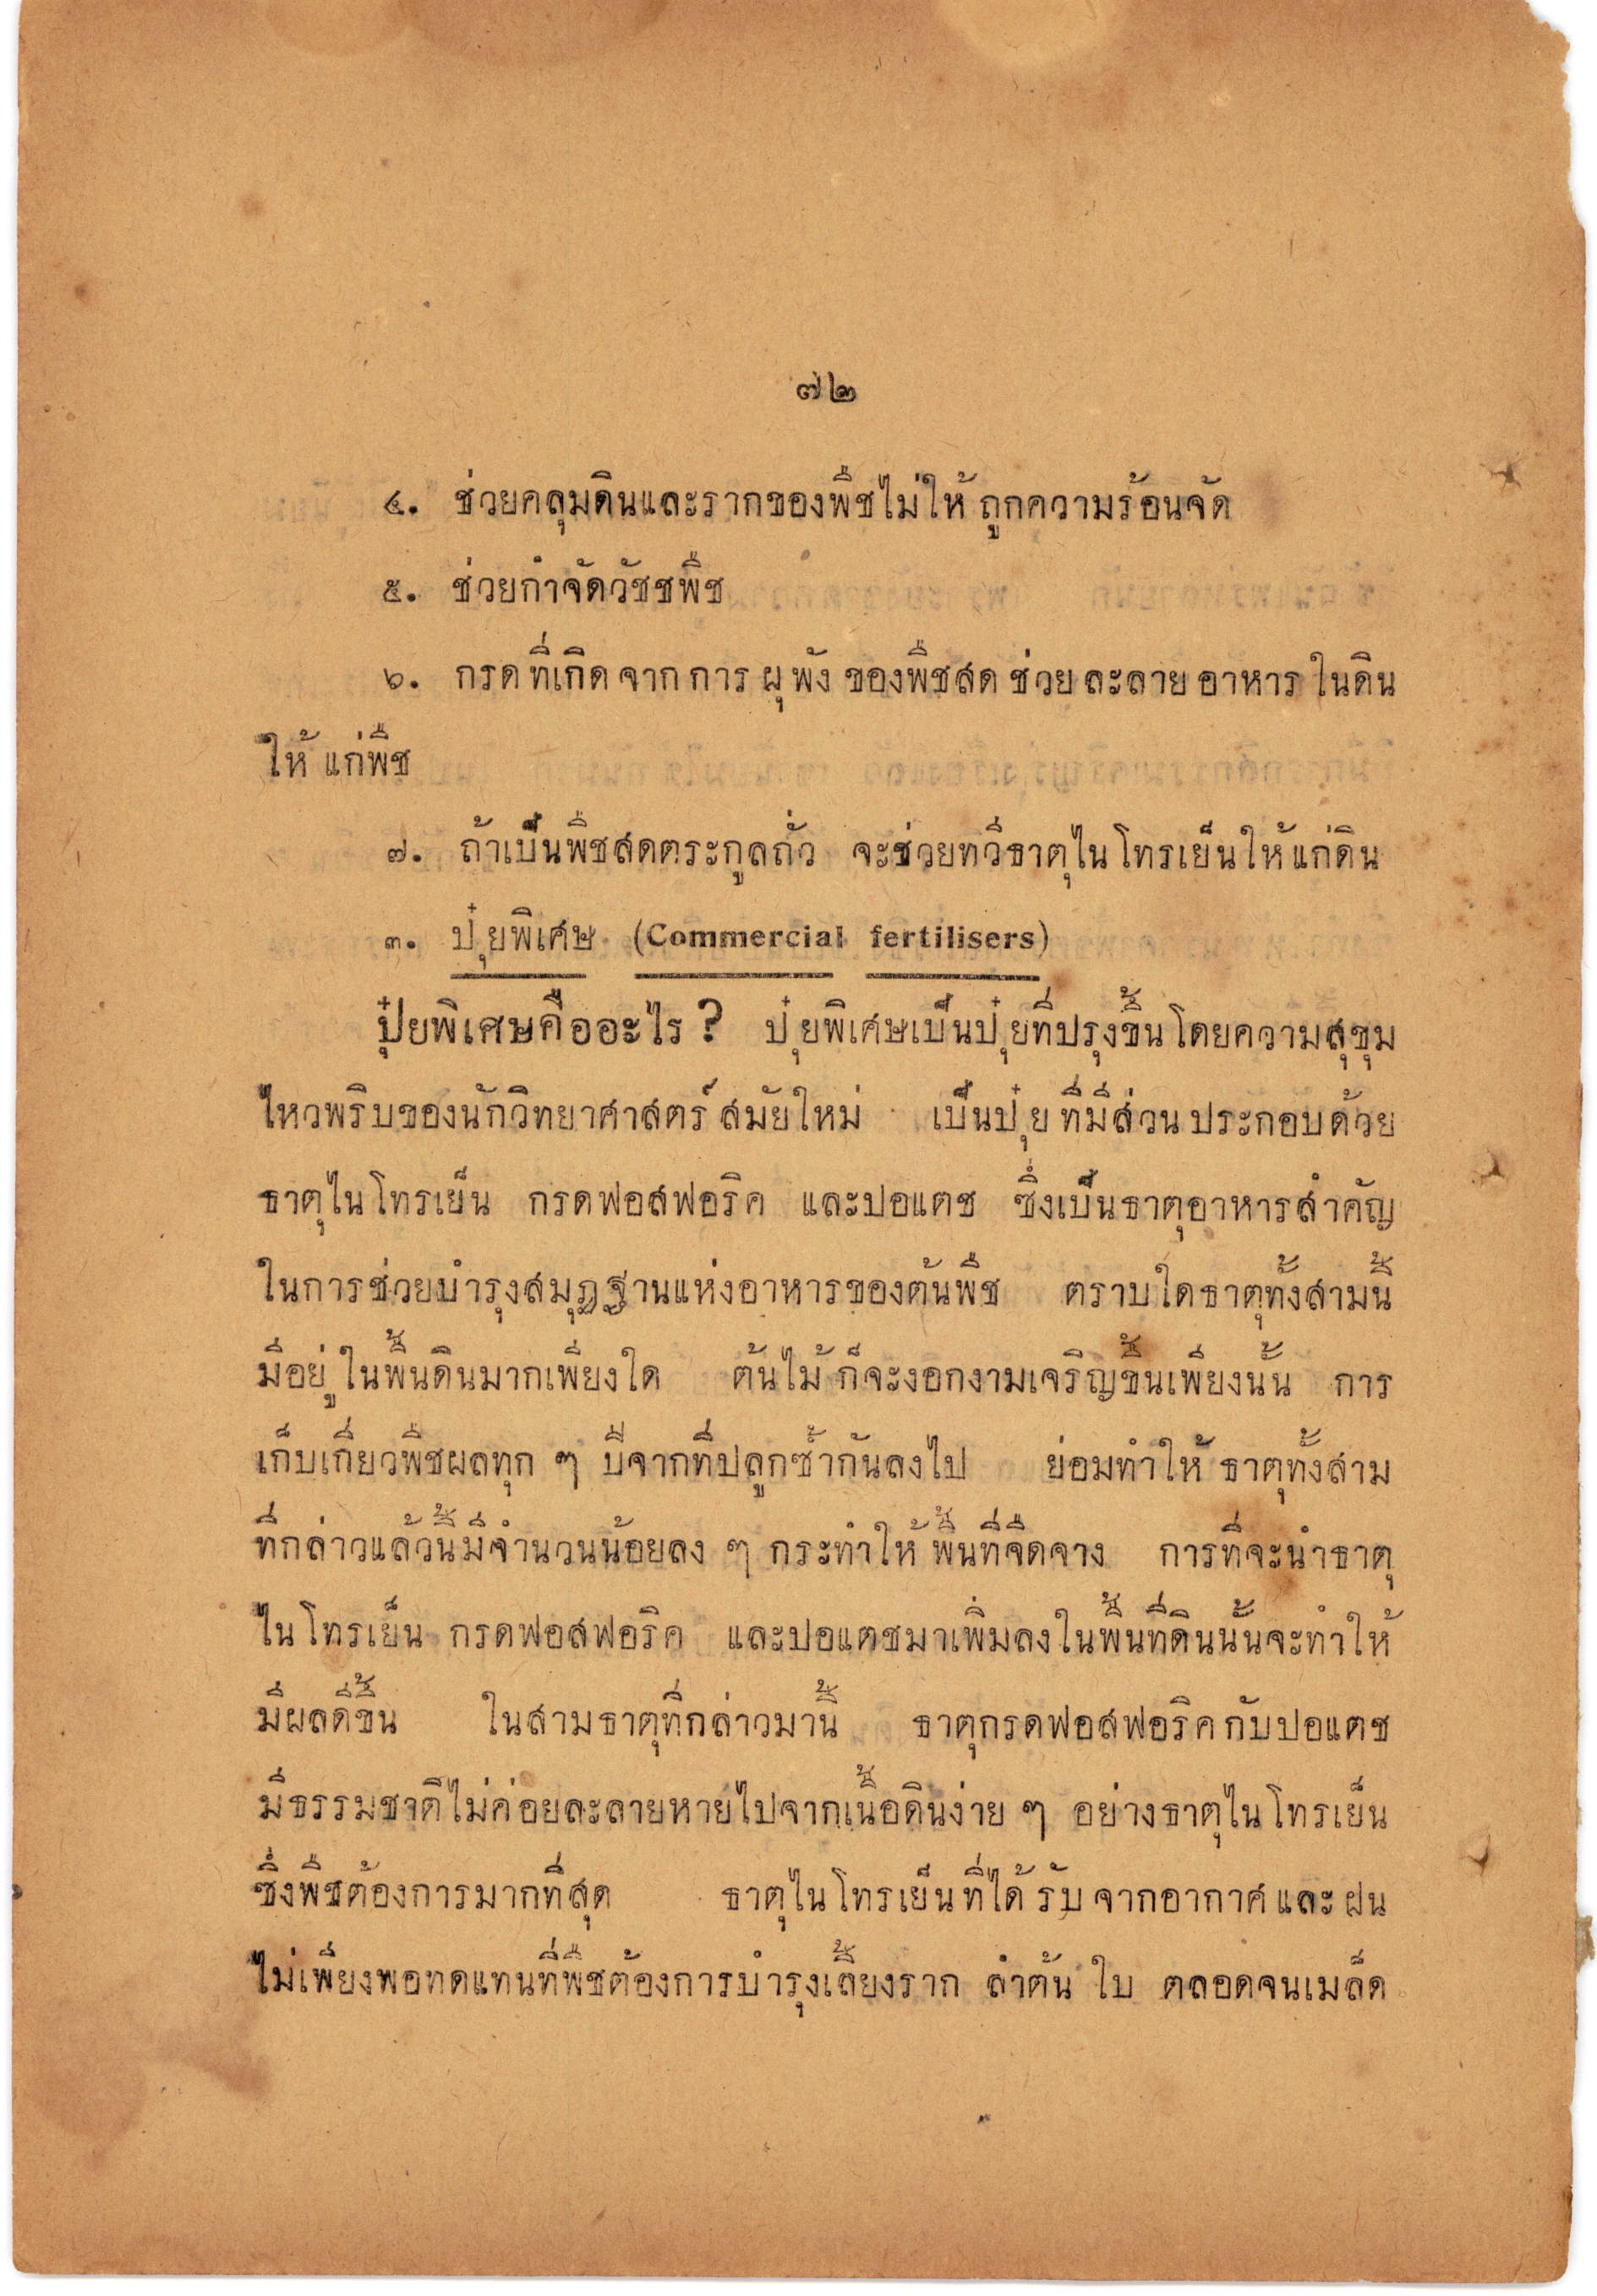 ๗๒
๔. ช่วยคลุมดินและรากของพืชไม่ให้ถูกความร้อนจัด
๕. ช่วยกำจัดวัชชพืช
๖. กรดที่เกิดจากการผุพังของพืชสดช่วยละลายอาหารในดิน
ให้แก่พืช
๗. ถ้าเป็นพืชสดตระกูลถั่ว จะช่วยทวีธาตุไนโทรเย็นให้แก่ดิน
๓. ปุ๋ยพิเศษ (Commercial fertilisers)
ปุ๋ยพิเศษคืออะไร? ปุ๋ยพิเศษเป็นปุ๋ยที่ปรุงขึ้นโดยความสุขุม
ไหวพริบของนักวิทยาศาสตร์สมัยใหม่ เป็นปุ๋ยที่มีส่วนประกอบด้วย
ธาตุไนโทรเย็น กรดฟอสฟอริค และปอแตช ซึ่งเป็นธาตุอาหารสำคัญ
ในการช่วยบำรุงสมุฏฐานแห่งอาหารของต้นพืช ตราบใดธาตุทั้งสามนี้
มีอยู่ในพื้นดินมากเพียงใด ต้นไม้ก็จะงอกงามเจริญขึ้นเพียงนั้น การ
เก็บเกี่ยวพืชผลทุก ๆ ปีจากที่ปลูกซ้ำกันลงไป ย่อมทำให้ธาตุทั้งสาม
ที่กล่าวแล้วนี้มีจำนวนน้อยลง ๆ กระทำให้พื้นที่จืดจาง การที่จะนำธาตุ
ไนโทรเย็น กรดฟอสฟอริค และปอแตชมาเพิ่มลงในพื้นที่ดินนั้นจะทำให้
มีผลดีขึ้น ในสามธาตุที่กล่าวมานี้ ธาตุกรดฟอสฟอริคกับปอแตช
มีธรรมชาติไม่ค่อยละลายหายไปจากเนื้อดินง่าย ๆ อย่างธาตุไนโทรเย็น
ซึ่งพืชต้องการมากที่สุด ธาตุไนโทรเย็นที่ได้รับจากอากาศและฝน
ไม่เพียงพอทดแทนที่พืชต้องการบำรุงเลี้ยงราก ลำต้น ใบ ตลอดจนเมล็ด